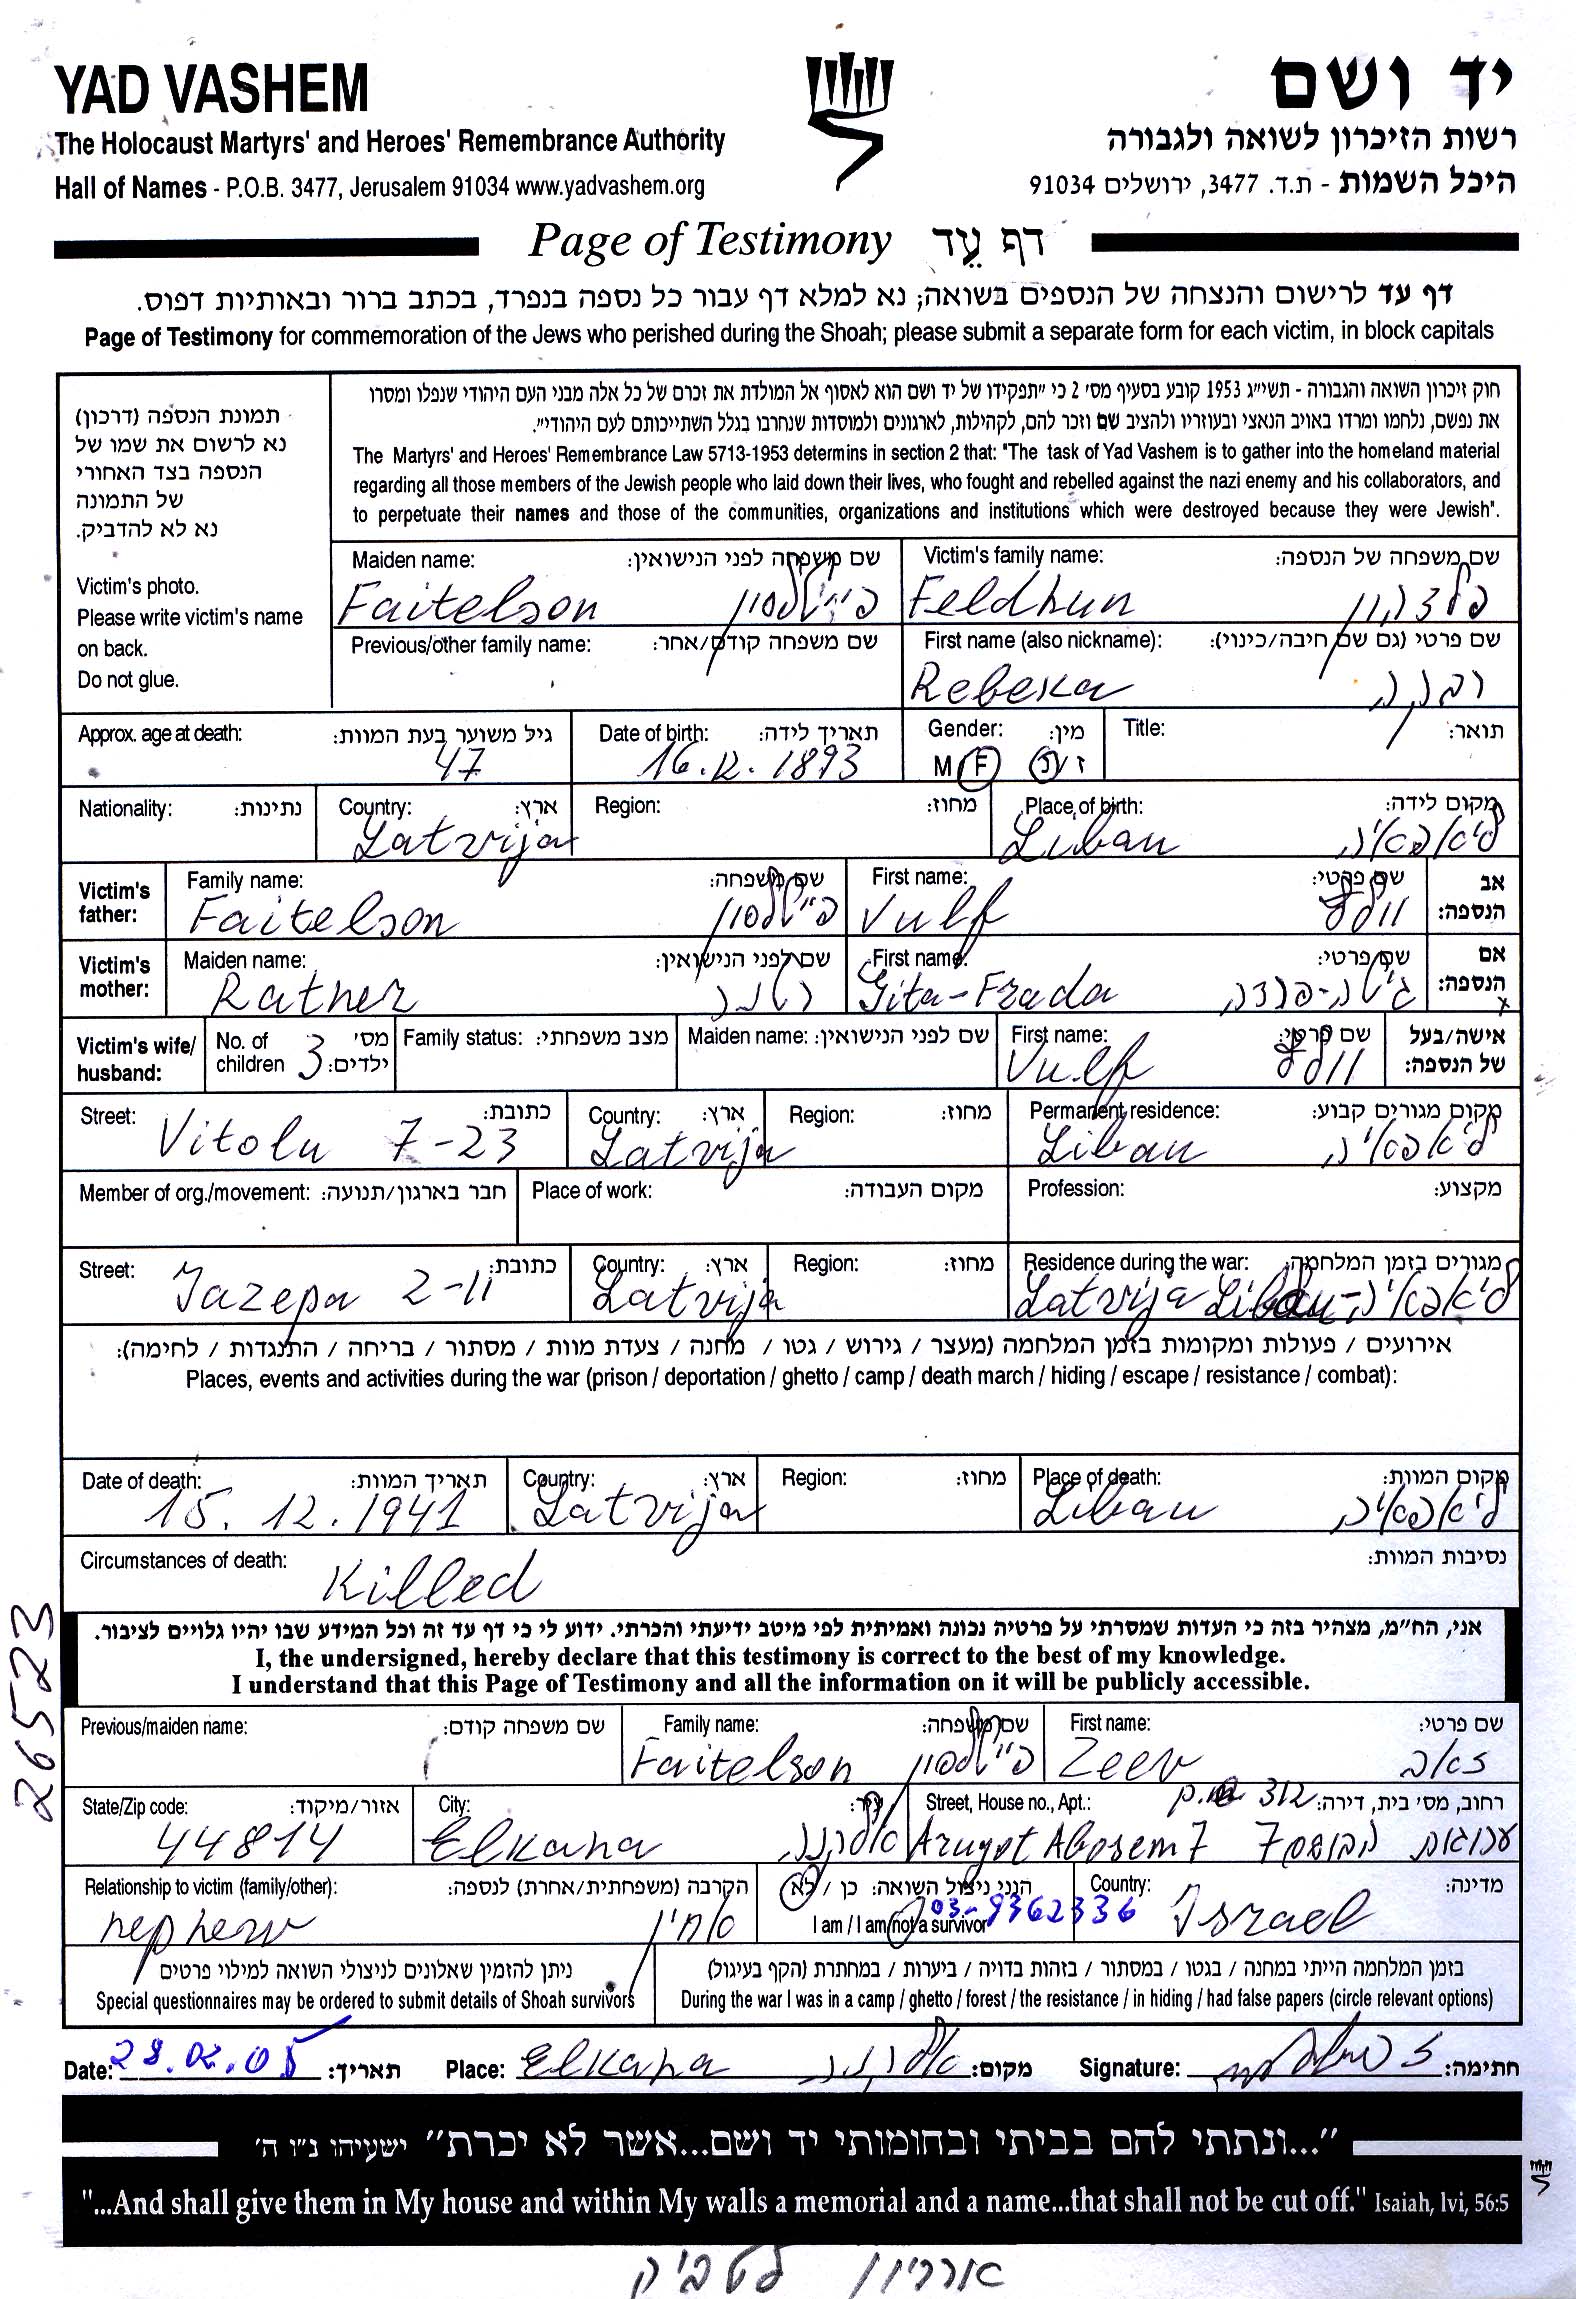 YAD VASHEM
יד ושם
The Holocaust Martyrs' and Heroes' Remembrance Authority
רשות הזיכרון לשואה ולגבורה
Hall of Names - P.O.B. 3477, Jerusalem 91034 www.yadvashem.org
היכל השמות - ת.ד. 3477, ירושלים 91034
Page of Testimony דף עֵד
דף עד לרישום והנצחה של הנספים בשואה; נא למלא דף עבור כל נספה בנפרד, בכתב ברור ובאותיות דפוס.
Page of Testimony for commemoration of the Jews who perished during the Shoah; please submit a separate form for each victim, in block capitals
תמונת הנספה (דרכון)
נא לרשום את שמו של
הנספה בצד האחורי
של התמונה
נא לא להדביק.
Victim's photo.
Please write victim's name
on back.
Do not glue.
חוק זיכרון השואה והגבורה - תשי"ג 1953 קובע בסעיף מס' 2 כי "תפקידו של יד ושם הוא לאסוף אל המולדת את זכרם של כל אלה מבני העם היהודי שנפלו ומסרו
את נפשם, נלחמו ומרדו באויב הנאצי ובעוזריו ולהציב שם וזכר להם, לקהילות, לארגונים ולמוסדות שנחרבו בגלל השתייכותם לעם היהודי".
The Martyrs' and Heroes' Remembrance Law 5713-1953 determins in section 2 that: "The task of Yad Vashem is to gather into the homeland material
regarding all those members of the Jewish people who laid down their lives, who fought and rebelled against the nazi enemy and his collaborators, and
to perpetuate their names and those of the communities, organizations and institutions which were destroyed because they were Jewish".
Maiden name: שם משפחה לפני הנישואין: Victim's family name: שם משפחה של הנספה:
Faitelson פייטלסון Feldhun פלדהון
Previous/other family name: שם משפחה קודם/אחר: First name (also nickname): שם פרטי (גם שם חיבה/כינוי):
Rebeka רבקה
Approx. age at death: גיל משוער בעת המוות: Date of birth: תאריך לידה: Gender: מין: Title: תואר:
47 16.12.1893 M F ז/נ
Nationality: נתינות: Country: ארץ: Region: מחוז: Place of birth: מקום לידה:
Latvija Libau ליאפאיה
Victim's father: Family name: שם משפחה: First name: שם פרטי: אב הנספה:
Faitelson פייטלסון Vulf וולף
Victim's mother: Maiden name: שם לפני הנישואין: First name: שם פרטי: אם הנספה:
Ratner רטנר Gita-Frada גיטה-פרדה
Victim's wife/ husband: No. of children 3 מס' ילדים: Family status: מצב משפחתי: Maiden name: שם לפני הנישואין: First name: שם פרטי: אישה/בעל של הנספה:
Vulf וולף
Street: כתובת: Country: ארץ: Region: מחוז: Permanent residence: מקום מגורים קבוע:
Vitolu 7-23 Latvija Libau ליאפאיה
Member of org./movement: חבר בארגון/תנועה: Place of work: מקום העבודה: Profession: מקצוע:
Street: כתובת: Country: ארץ: Region: מחוז: Residence during the war: מגורים בזמן המלחמה:
Jazepa 2-11 Latvija Latvija Libau ליאפאיה
אירועים / פעולות ומקומות בזמן המלחמה (מעצר / גירוש / גטו / מחנה / צעדת מוות / מסתור / בריחה / התנגדות / לחימה):
Places, events and activities during the war (prison / deportation / ghetto / camp / death march / hiding / escape / resistance / combat):
Date of death: תאריך המוות: Country: ארץ: Region: מחוז: Place of death: מקום המוות:
15.12.1941 Latvija Libau ליאפאיה
Circumstances of death: נסיבות המוות:
Killed
אני, הח"מ, מצהיר בזה כי העדות שמסרתי על פרטיה נכונה ואמיתית לפי מיטב ידיעתי והכרתי. ידוע לי כי דף עד זה וכל המידע שבו יהיו גלויים לציבור.
I, the undersigned, hereby declare that this testimony is correct to the best of my knowledge.
I understand that this Page of Testimony and all the information on it will be publicly accessible.
26523
Previous/maiden name: שם משפחה קודם: Family name: שם משפחה: First name: שם פרטי:
Faitelson פייטלסון Zeev זאב
State/Zip code: אזור/מיקוד: City: עיר: Street, House no., Apt.: 312 רחוב, מס' בית, דירה:
44814 Elkana אלקנה Arugot Abosem 7 ערוגות הבושם 7
Relationship to victim (family/other): הקרבה (משפחתית/אחרת) לנספה: הנני ניצול השואה: כן / לא Country: מדינה:
nephew אחיין I am / I am not a survivor 03-9362336 Israel
ניתן להזמין שאלונים לניצולי השואה למילוי פרטים
Special questionnaires may be ordered to submit details of Shoah survivors
בזמן המלחמה הייתי במחנה / בגטו / במסתור / בזהות בדויה / ביערות / במחתרת (הקף בעיגול)
During the war I was in a camp / ghetto / forest / the resistance / in hiding / had false papers (circle relevant options)
Date: 28.02.05 תאריך: Place: Elkana אלקנה מקום: Signature: חתימה:
"...ונתתי להם בביתי ובחומותי יד ושם...אשר לא יכרת" ישעיהו נ"ו ה'
"...And shall give them in My house and within My walls a memorial and a name...that shall not be cut off." Isaiah, lvi, 56:5
לטביה